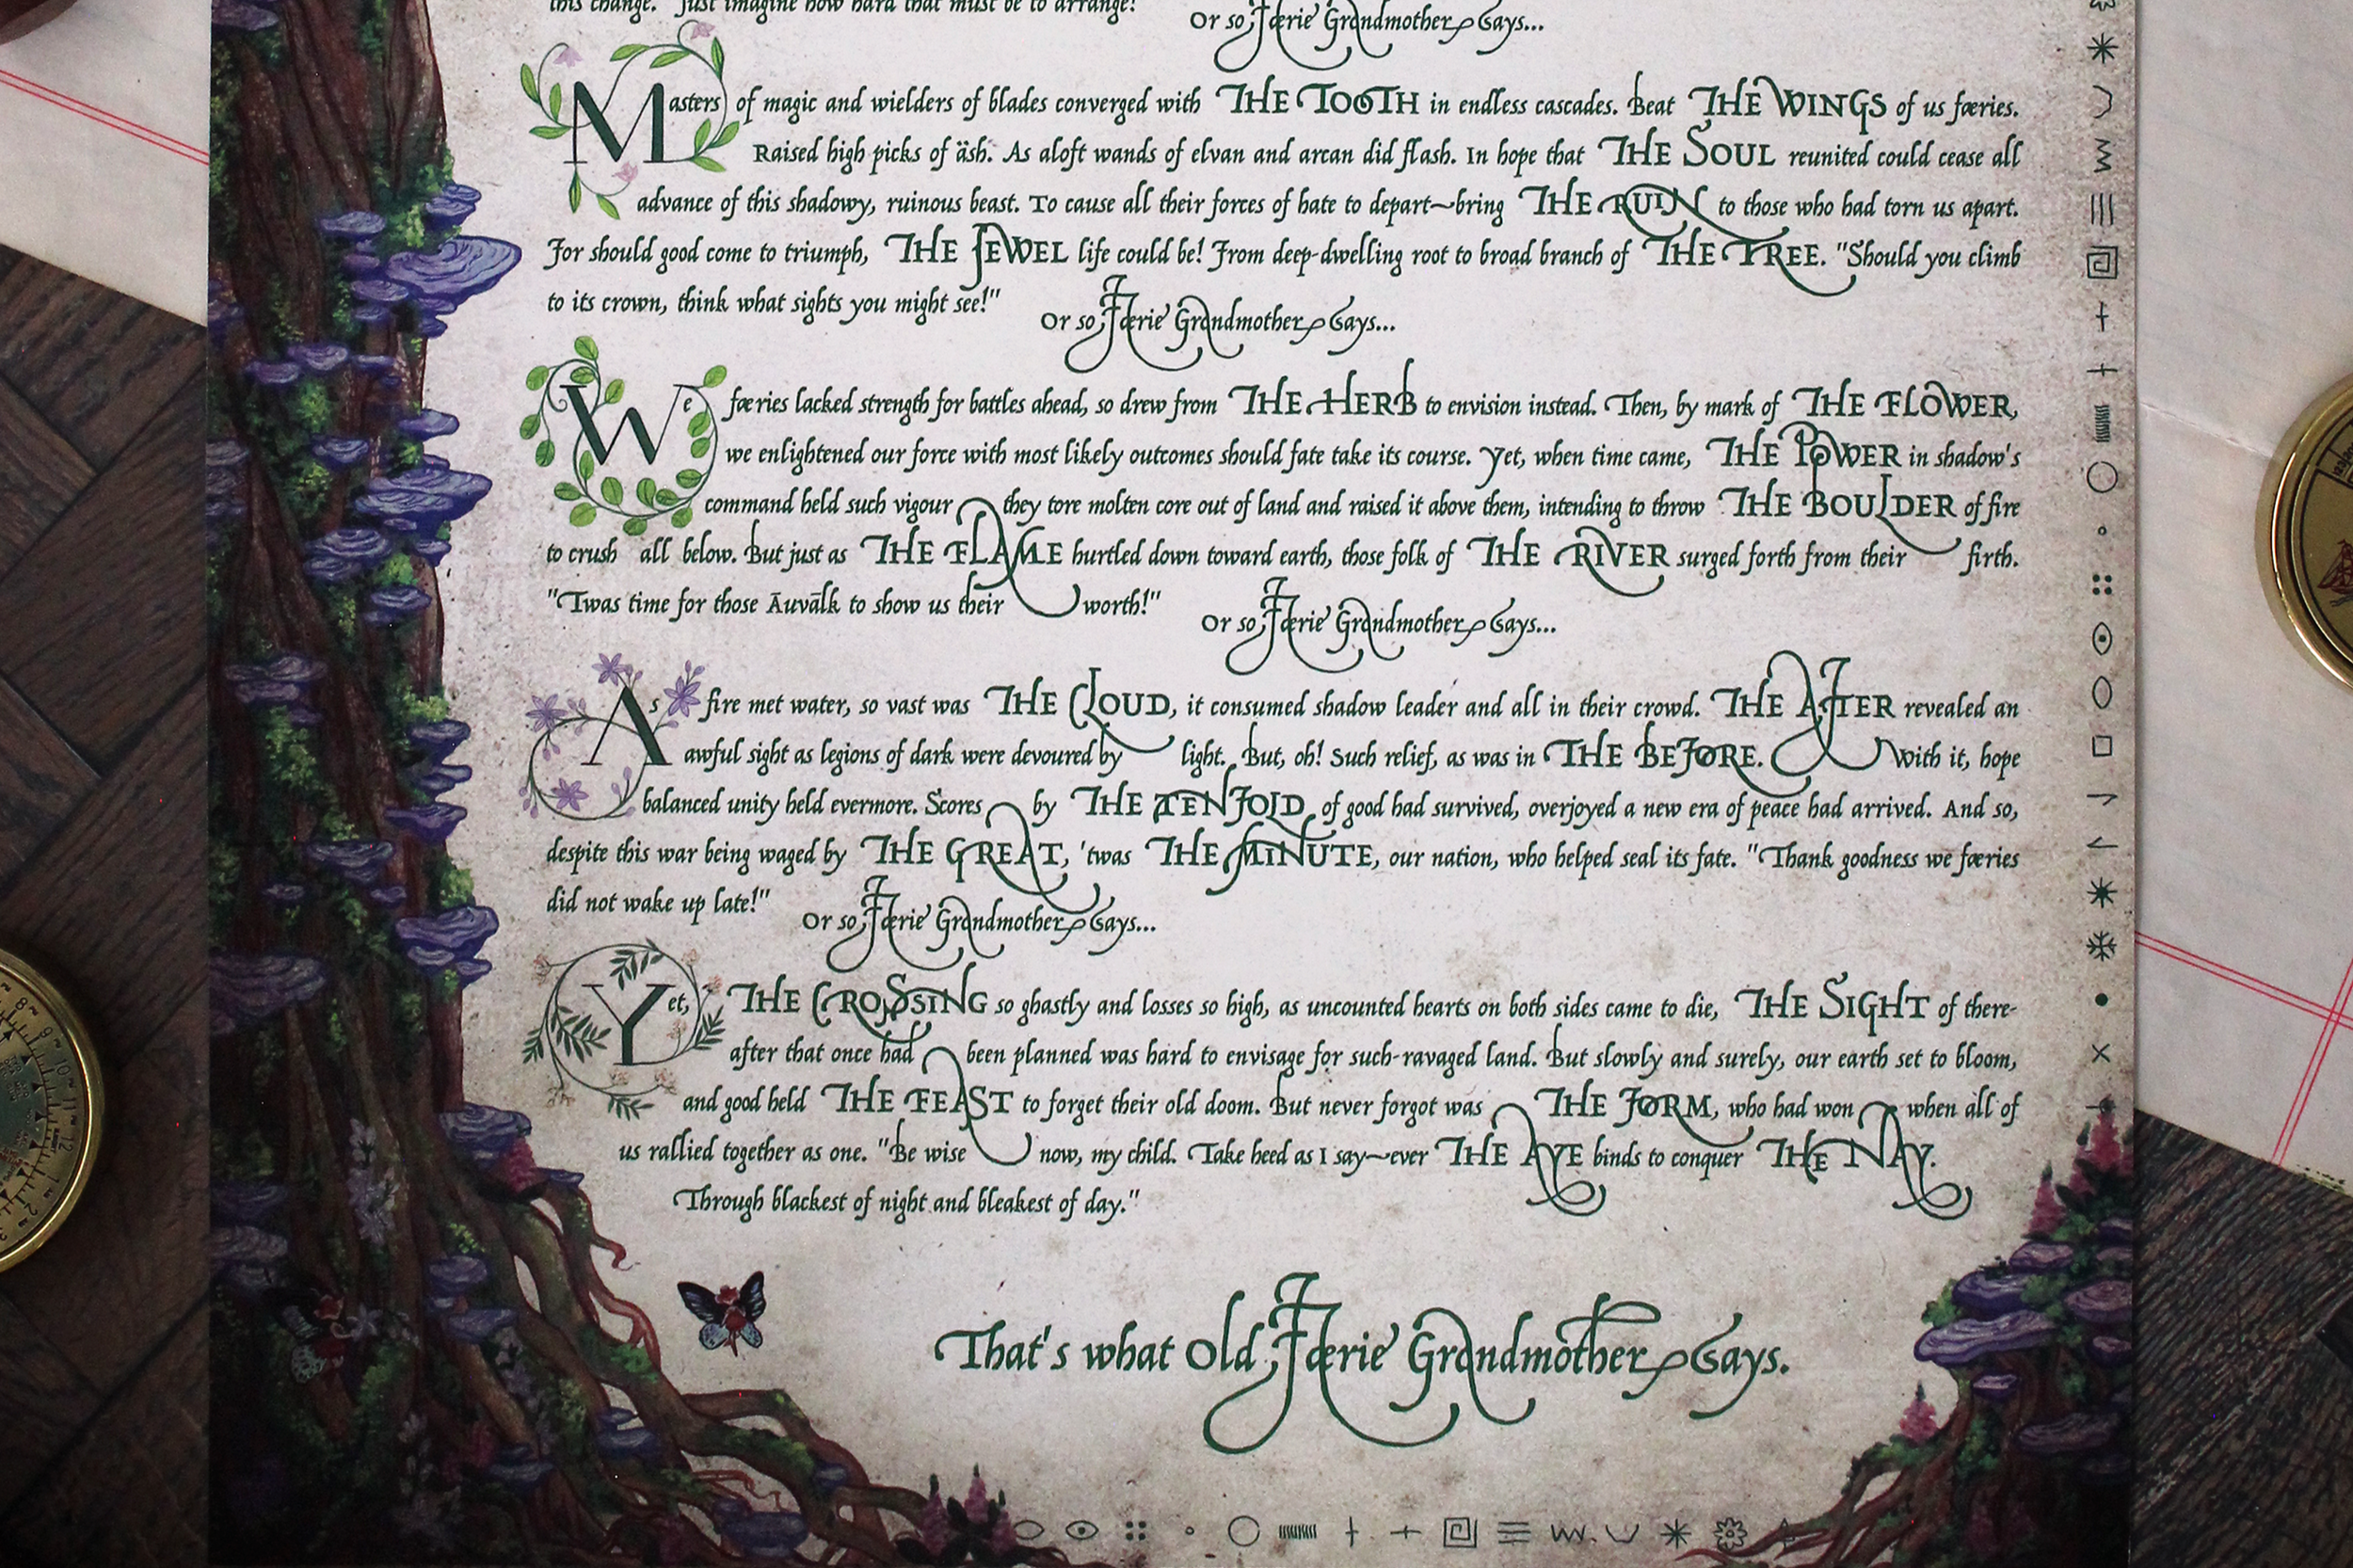 this change. "Just imagine how hard that must be to arrange!"
Or so Færie Grandmother Says...
Masters of magic and wielders of blades converged with THE TOOTH in endless cascades. Beat THE WINGS of us færies.
Raised high picks of äsh. As aloft wands of elvan and arcan did flash. In hope that THE SOUL reunited could cease all
advance of this shadowy, ruinous beast. To cause all their forces of hate to depart~bring THE RUIN to those who had torn us apart.
For should good come to triumph, THE JEWEL life could be! From deep-dwelling root to broad branch of THE TREE. "Should you climb
to its crown, think what sights you might see!"
Or so Færie Grandmother Says...
We færies lacked strength for battles ahead, so drew from THE HERB to envision instead. Then, by mark of THE FLOWER,
we enlightened our force with most likely outcomes should fate take its course. Yet, when time came, THE POWER in shadow's
command held such vigour they tore molten core out of land and raised it above them, intending to throw THE BOULDER of fire
to crush all below. But just as THE FLAME hurtled down toward earth, those folk of THE RIVER surged forth from their firth.
"Twas time for those Āuvālk to show us their worth!"
Or so Færie Grandmother Says...
As fire met water, so vast was THE CLOUD, it consumed shadow leader and all in their crowd. THE AFTER revealed an
awful sight as legions of dark were devoured by light. But, oh! Such relief, as was in THE BEFORE. With it, hope
balanced unity held evermore. Scores by THE TENFOLD of good had survived, overjoyed a new era of peace had arrived. And so,
despite this war being waged by THE GREAT, 'twas THE MINUTE, our nation, who helped seal its fate. "Thank goodness we færies
did not wake up late!"
Or so Færie Grandmother Says...
Yet, THE CROSSING so ghastly and losses so high, as uncounted hearts on both sides came to die, THE SIGHT of there-
after that once had been planned was hard to envisage for such-ravaged land. But slowly and surely, our earth set to bloom,
and good held THE FEAST to forget their old doom. But never forgot was THE FORM, who had won when all of
us rallied together as one. "Be wise now, my child. Take heed as I say~ever THE AYE binds to conquer THE NAY.
Through blackest of night and bleakest of day."
That's what Old Færie Grandmother Says.